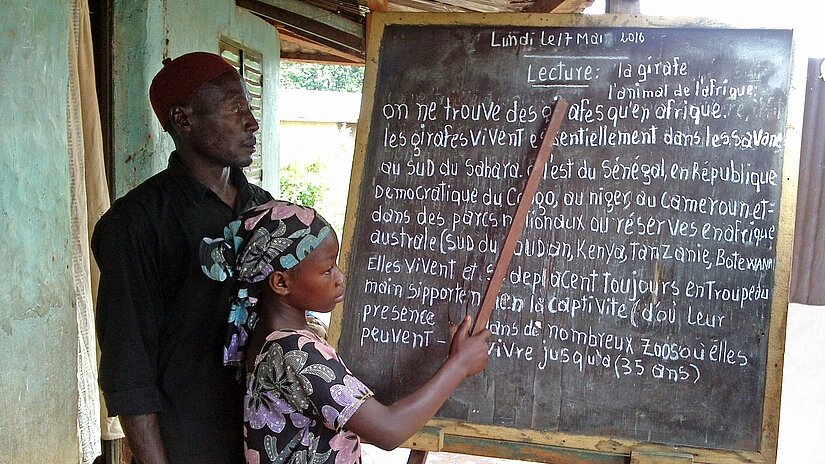 Lundi Le 17 Mai 2016
Lecture: la girafe
l'animal de l'afrique:
on ne trouve des girafes qu'en afrique.
les girafes vivent essentiellement dans les savane
au sud du sahara. l'est du Sénégal, en République
Democratique du Congo, au niger, au Cameroun et=
dans des parcs nationaux ou réserves en afrique
australe (sud du Soudan, Kenya, Tanzanie, Botewana
Elles vivent et se deplacent toujours en troupeau
main sipporte en la captivité (d'où leur
presence dans de nombreux zoos où elles
peuvent - vivre jusqu'à (35 ans)